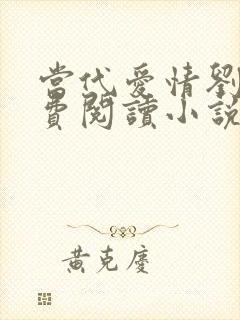 當代愛情劉
費閱讀小說
黃克慶